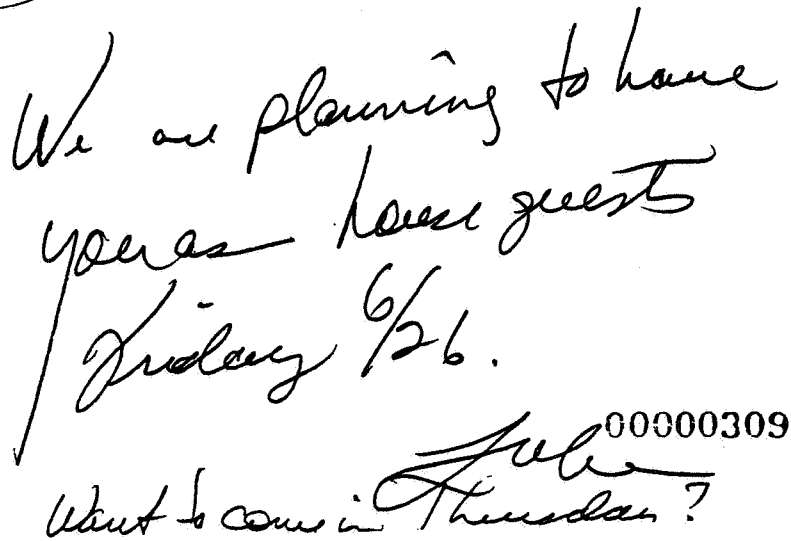 We are planning to have
you as house guests
Friday 6/26.
00000309
Want to come in Thursday?